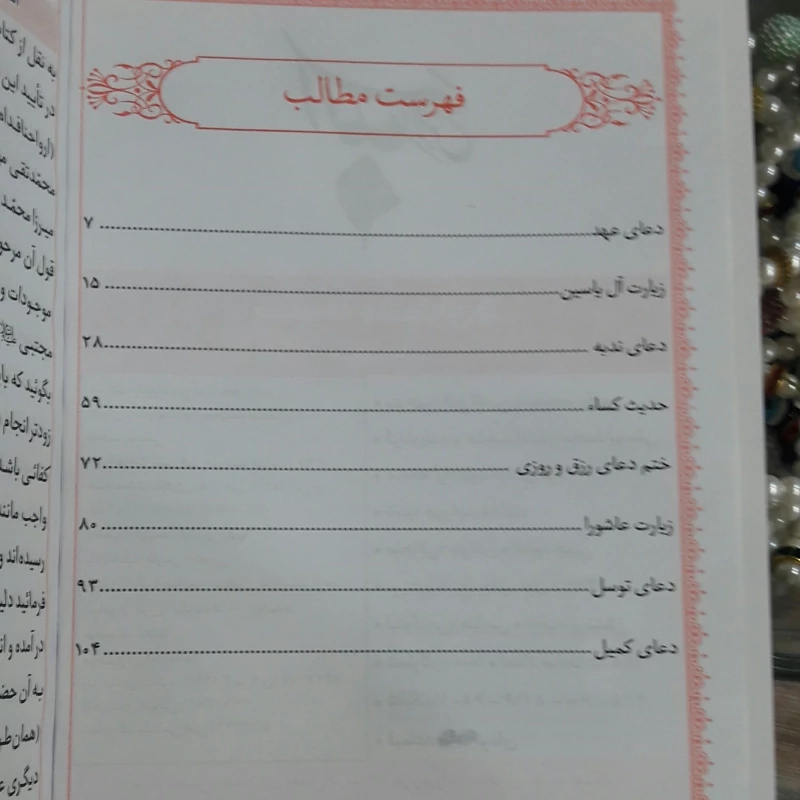 فهرست مطالب
دعای عهد ........ ۷
زیارت آل یاسین ........ ۱۵
دعای ندبه ........ ۲۸
حدیث کساء ........ ۵۹
ختم دعای رزق و روزی ........ ۷۲
زیارت عاشورا ........ ۸۰
دعای توسل ........ ۹۳
دعای کمیل ........ ۱۰۴
به نقل از
در تأیید این
محمّدتقی
میرزا محمّد
قول آن
موجودات و
مجتبی
بگوئید که
زودتر انجام
کفائی باشد
واجب مانند
رسیده‌اند و
فرمائید
در آمده و
به آن
(همان
دیگری